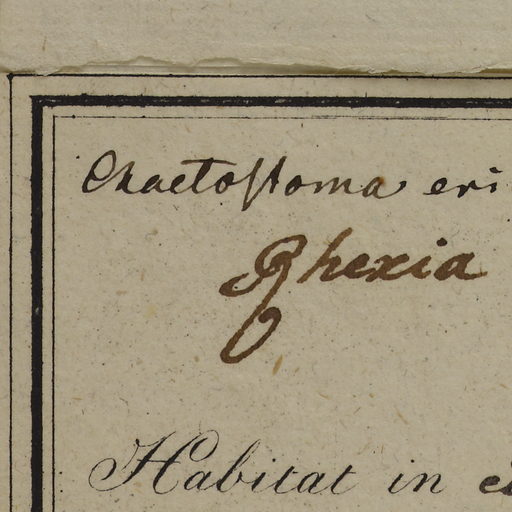 Chaetostoma eri
Rhexia
Habitat in